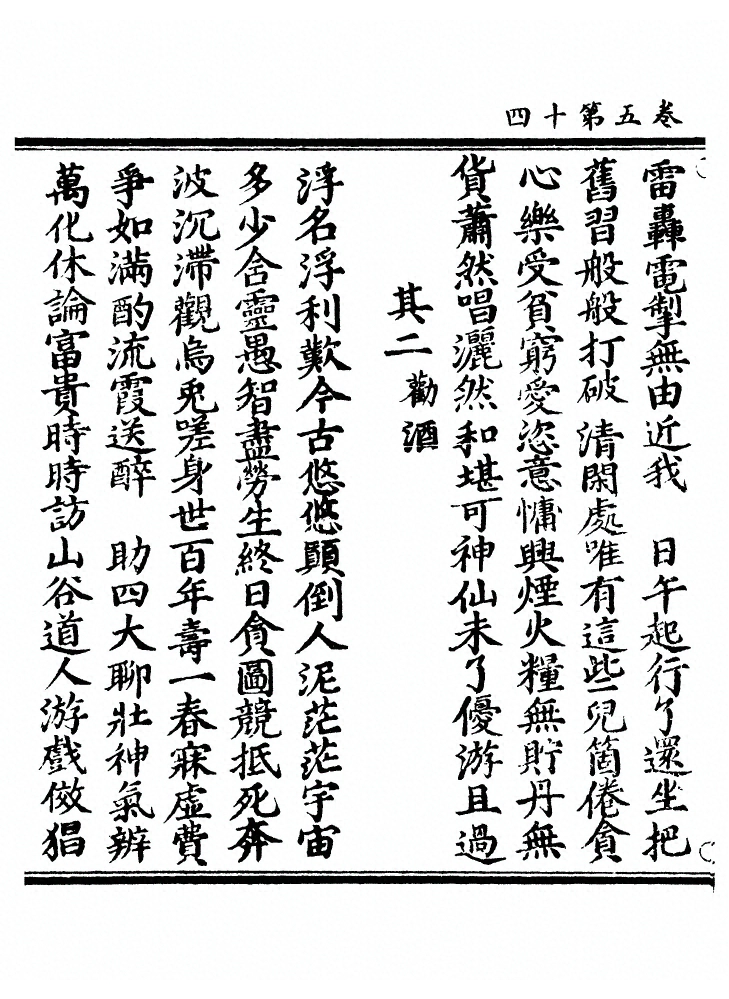 卷五第十四
雷轟電掣無由近我　日午起行了還坐把
舊習般般打破　清閑處唯有這些兒箇倦貪
心樂受貧窮愛恣意慵興煙火糧無貯丹無
貨蕭然唱灑然和堪可神仙未了優游且過
其二勸酒
浮名浮利歎今古悠悠顛倒人泥茫茫宇宙
多少含靈愚智盡勞生終日貪圖競抵死奔
波沉滯觀烏兔嗟身世百年壽一春寐虛費
爭如滿酌流霞送醉　助四大聊壯神氣辨
萬化休論富貴時時訪山谷道人游戲倣猖